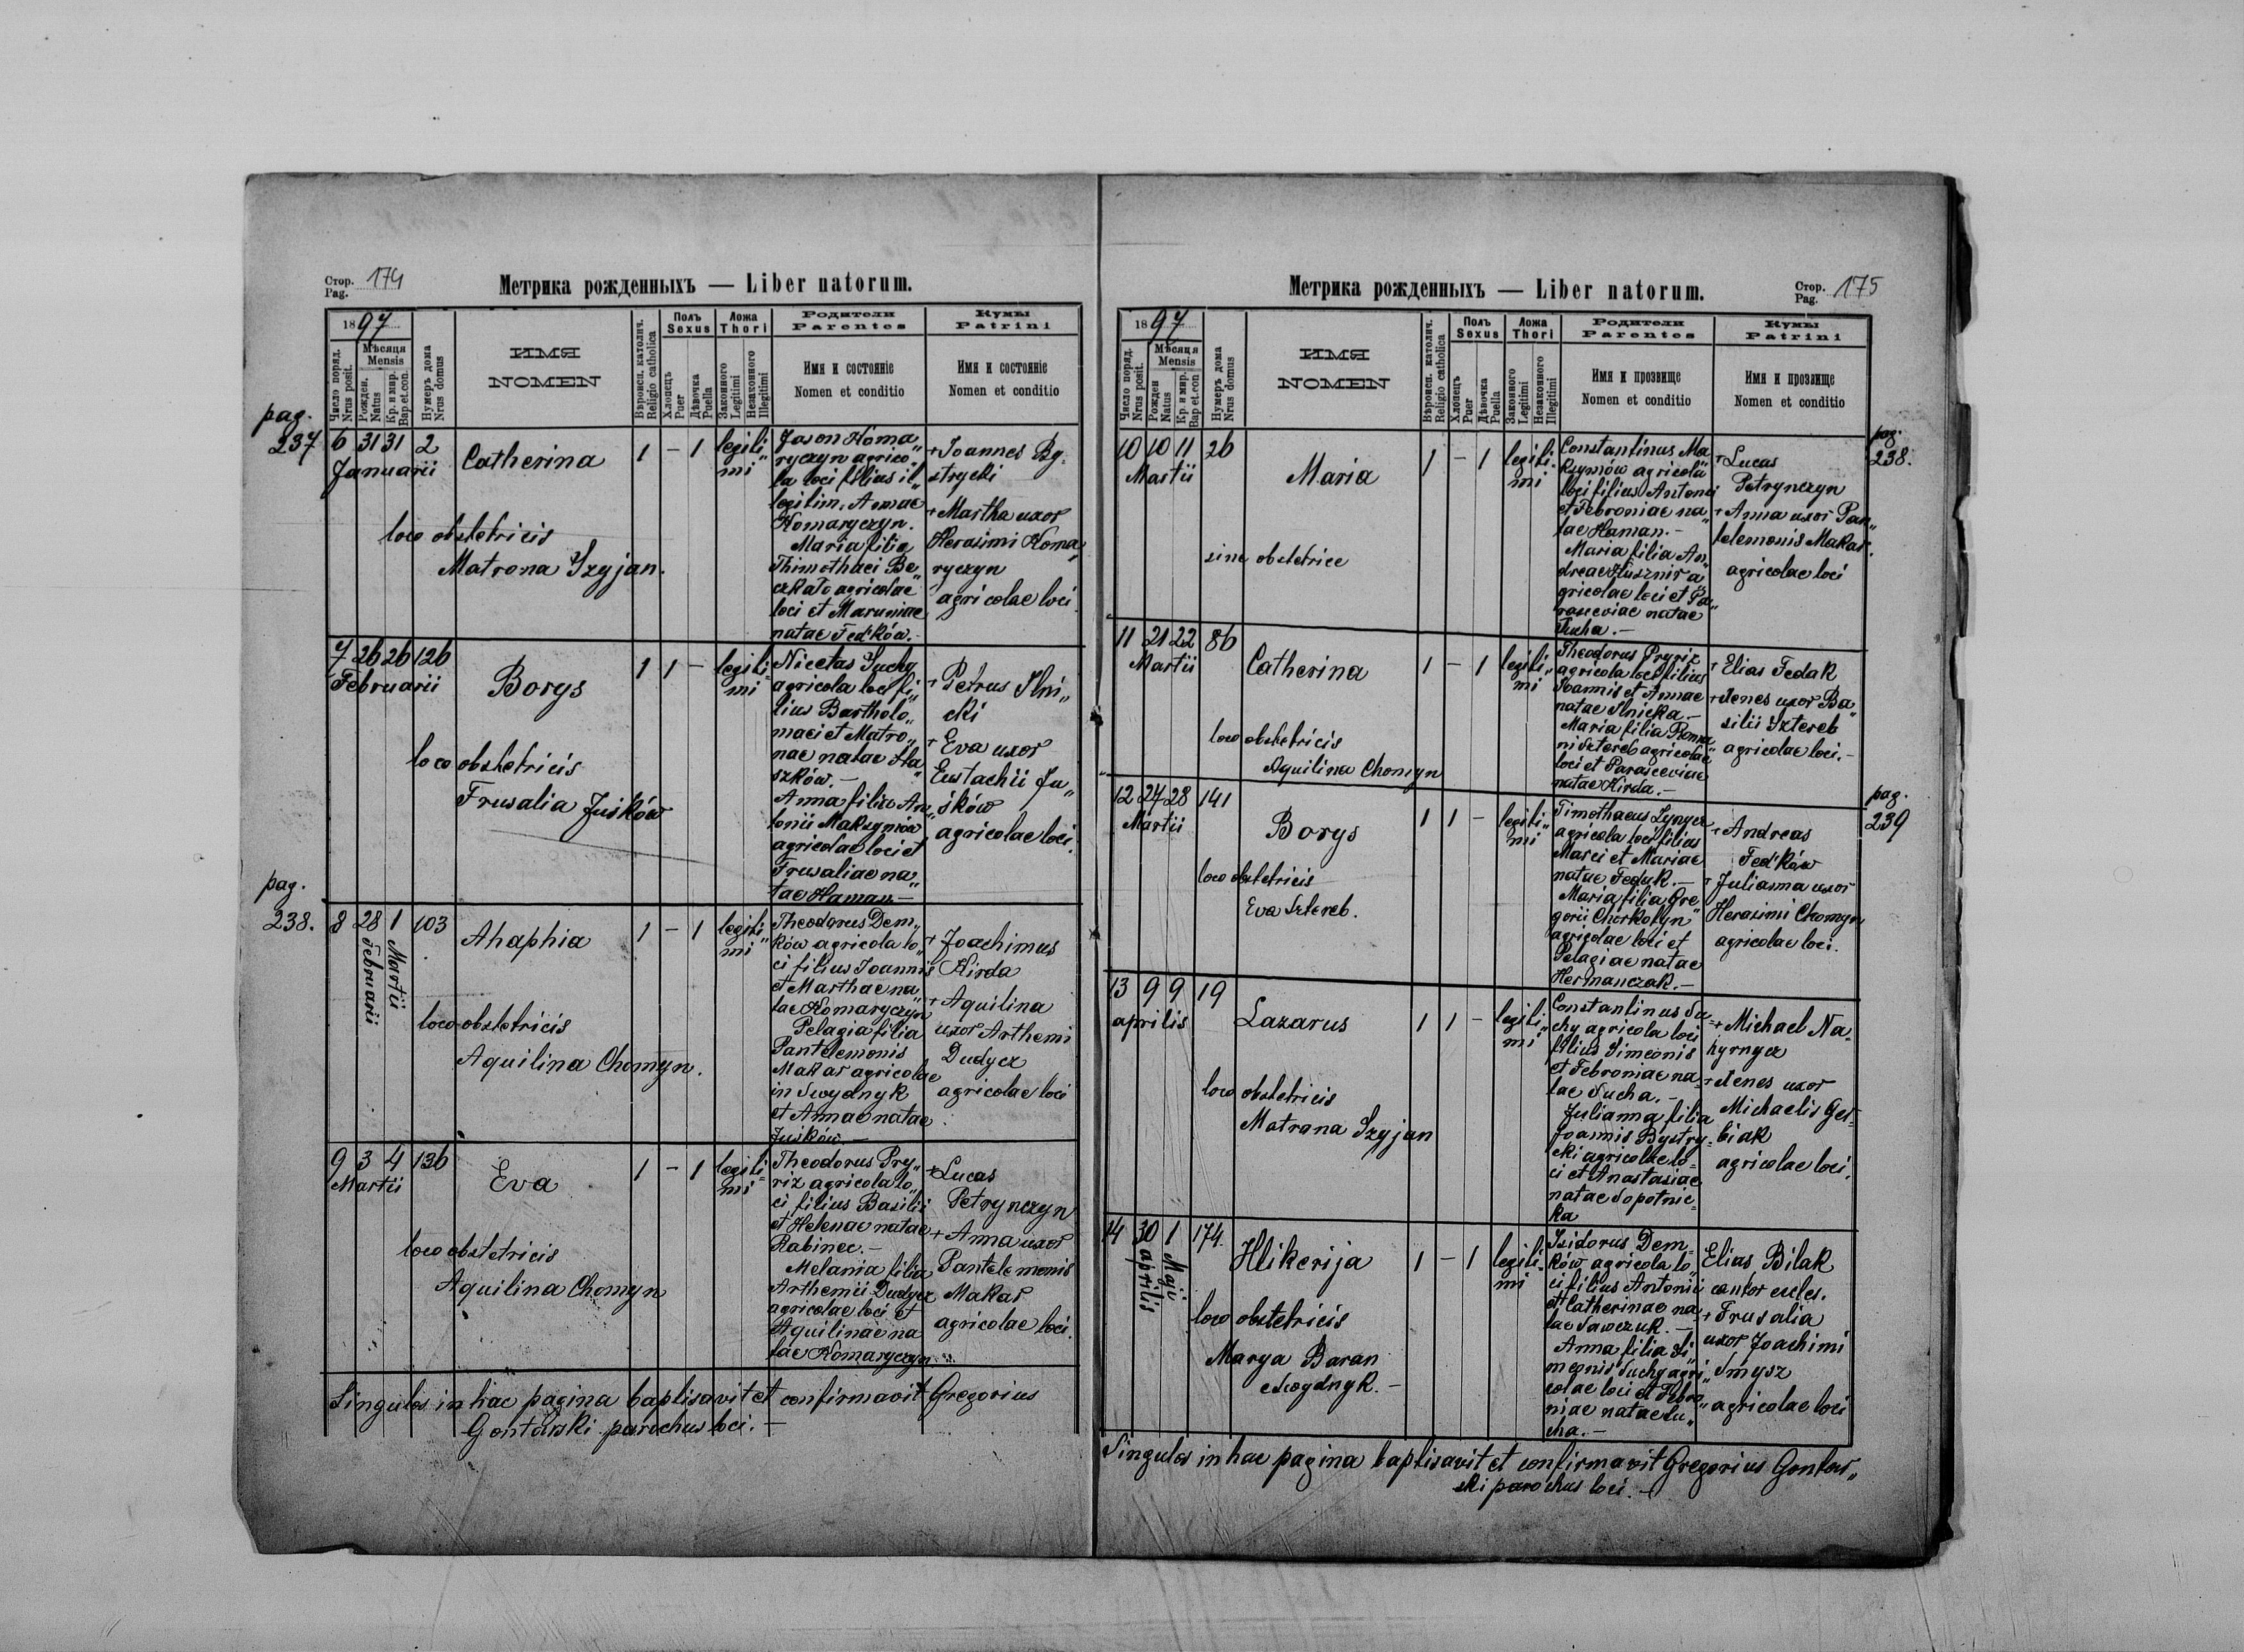 Стор. 174
Pag.
Метрика рожденныхъ — Liber natorum.
1897
Число поряд.
Nrus posit.
Мѣсяця
Mensis
Рожден.
Natus
Кр. и мир.
Bap et.con.
Нумеръ дома
Nrus domus
ИМЯ
NOMEN
Вѣроисп. католич.
Religio catholica
Полъ
Sexus
Хлопецъ
Puer
Дѣвочка
Puella
Ложа
Thori
Законного
Legitimi
Незаконного
Illegitimi
Родители
Parentes
Имя и состояніе
Nomen et conditio
Кумы
Patrini
Имя и состояніе
Nomen et conditio
pag.
237
6 31 31 2
Januarii
Catherina
1 - 1
legiti„
mi
loco obstetricis
Matrona Szyjan.
Jason Koma„
ryczyn agrico„
la loci filius il„
legitim. Annae
Komaryczyn.
Maria filia
Thimothaei Be„
czkało agricolae
loci et Maruniae
natae Fedków.-
+ Joannes By„
strycki
+ Martha uxor
Herasimi Koma„
ryczyn
agricolae loci.
7 26 26 126
Februarii
Borys
1 1 -
legiti„
mi
loco obstetricis
Frusalia Juśków
Nicetas Suchy
agricola loci fi„
lius Bartholo„
maei et Matro„
nae natae Ha„
szków.-
Anna filia An„
tonii Maksymów
agricolae loci et
Frusaliae na„
tae Haman.-
+ Petrus Ilni„
cki
+ Eva uxor
Eustachii Ju„
śków
agricolae loci.
pag.
238.
8 28 1 103
Februarii
Martii
Ahaphia
1 - 1
legiti„
mi
loco obstetricis
Aquilina Chomyn.
Theodorus Dem„
ków agricola lo„
ci filius Joannis
et Marthae na„
tae Komaryczyn
Pelagia filia
Pantelemonis
Makar agricolae
in Swydnyk
et Annae natae
Juśków.-
+ Joachimus
Kirda
+ Aquilina
uxor Arthemi
Dudycz
agricolae loci
9 3 4 136
Martii
Eva
1 - 1
legiti„
mi
loco obstetricis
Aquilina Chomyn
Theodorus Pry„
riz agricola lo„
ci filius Basilii
et Helenae natae
Rabinec.-
Melania filia
Arthemii Dudycz
agricolae loci et
Aquilinae na
tae Komaryczyn
+ Lucas
Petrynczyn
+ Anna uxor
Pantelemonis
Makar
agricolae loci.
Singulos in hac pagina baptisavit et confirmavit Gregorius
Gontarski parochus loci.-
Метрика рожденныхъ — Liber natorum.
Стор. 175
Pag.
1897
Число поряд.
Nrus posit.
Мѣсяця
Mensis
Рожден
Natus
Кр. и мир.
Bap et.con
Нумеръ дома
Nrus domus
ИМЯ
NOMEN
Вѣроисп. католич.
Religio catholica
Полъ
Sexus
Хлопецъ
Puer
Дѣвочка
Puella
Ложа
Thori
Законного
Legitimi
Незаконного
Illegitimi
Родители
Parentes
Имя и прозвище
Nomen et conditio
Кумы
Patrini
Имя и прозвище
Nomen et conditio
pag.
238.
10 10 11 26
Martii
Maria
1 - 1
legiti„
mi
sine obstetrice
Constantinus Ma„
ksymów agricola
loci filius Antonii
et Febroniae na„
tae Haman.-
Maria filia An„
dreae Kusznir a„
gricolae loci et Pa„
rasceviae natae
Puha.-
+ Lucas
Petrynczyn
+ Anna uxor Pan„
telemonis Makar.
agricolae loci
11 21 22 86
Martii
Catherina
1 - 1
legiti„
mi
loco obstetricis
Aquilina Chomyn
Theodorus Pryriz
agricola loci filius
Joannis et Annae
natae Ilnicka.-
Maria filia Roma„
ni Sztereb agricolae
loci et Parasceviae
natae Kirda.-
+ Elias Fedak
+ Xenes uxor Ba„
silii Sztereb
agricolae loci.-
pag.
239
12 27 28 141
Martii
Borys
1 1 -
legiti„
mi
loco obstetricis
Eva Sztereb.
Timothaeus Zynycz
agricola loci filius
Marci et Mariae
natae Feduk.-
Maria filia Gre„
gorii Chorkołyn
agricolae loci et
Pelagiae natae
Hermanczak.-
+ Andreas
Fedków
+ Julianna uxor
Herasimi Chomyn
agricolae loci.
13 9 9 19
aprilis
Lazarus
1 1 -
legiti„
mi
loco obstetricis
Matrana Szyjan
Constantinus Su„
chy agricola loci
filius Simeonis
et Febroniae na„
tae Sucha.-
Julianna filia
Joannis Bystry„
cki agricolae lo„
ci et Anastasiae
natae Sopotnic„
ka
+ Michael Na„
hyrnycz
+ Xenes uxor
Michaelis Ger„
biak
agricolae loci.
14 30 1 174.
aprilis
Maji
Hlikerija
1 - 1
legiti„
mi
loco obstetricis
Marya Baran
e Swydnyk.-
Izidorus Dem„
ków agricola lo„
ci filius Antonii
et Catherinae na„
tae Sawczuk.-
Anna filia Si„
meonis Suchy agri„
colae loci et Febro„
niae natae Su„
cha.-
Elias Bilak
cantor eccles.
+ Frusalia
uxor Joachimi
Smysz
agricolae loci
Singulos in hac pagina baptisavit et confirmavit Gregorius Gontar„
ski parochus loci.-